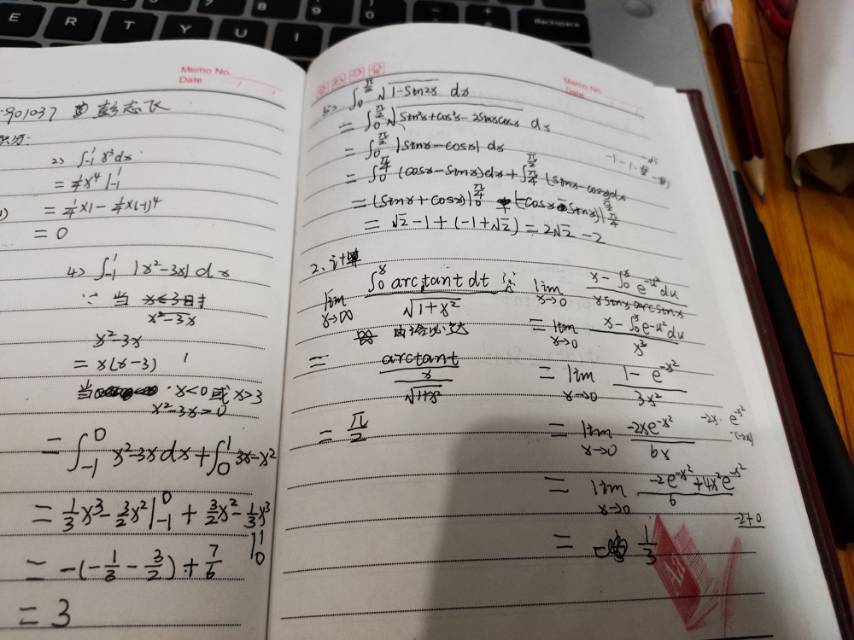 E R T Y U I
Backspace
Memo No.
Date
901037
2) ∫₋₁¹ x³dx
= ¼x⁴|₋₁¹
= ¼×1 - ¼×(-1)⁴
= 0
4) ∫₋₁¹ |x²-3x| dx
∵ 当 x<3时
x²-3x
x²-3x
= x(x-3)
当 x<0或x>3
x²-3x=0
= ∫₋₁⁰ x²-3x dx + ∫₀¹ 3x-x²
= ⅓x³ - 3/2x²|₋₁⁰ + 3/2x² - ⅓x³|₀¹
= -(-⅓ - 3/2) + 7/6
= 3
Memo No.
Date
∫₀^(π/2) √(1-sin2x) dx
= ∫₀^(π/2) √(sin²x+cos²x-2sinxcosx) dx
= ∫₀^(π/2) |sinx-cosx| dx
= ∫₀^(π/4) (cosx-sinx)dx + ∫_(π/4)^(π/2) (sinx-cosx)dx
= (sinx+cosx)|₀^(π/4) + (-cosx-sinx)|_(π/4)^(π/2)
= √2-1+(-1+√2) = 2√2-2
2. 计算
lim x→∞ ∫₀ˣ arctant dt / √(1+x²)
由洛必达
= arctant / (x/√(1+x²))
= π/2
lim x→0 (x-∫₀ˣ e^(-u²)du) / (x sinx arcsinx)
= lim x→0 (x-∫₀ˣ e^(-u²)du) / x³
= lim x→0 (1-e^(-x²)) / 3x²
= lim x→0 -2xe^(-x²) / 6x
-2x·e^(-x²)
(-2x)
= lim x→0 (-2e^(-x²)+4x²e^(-x²)) / 6
-2+0
= ⅓